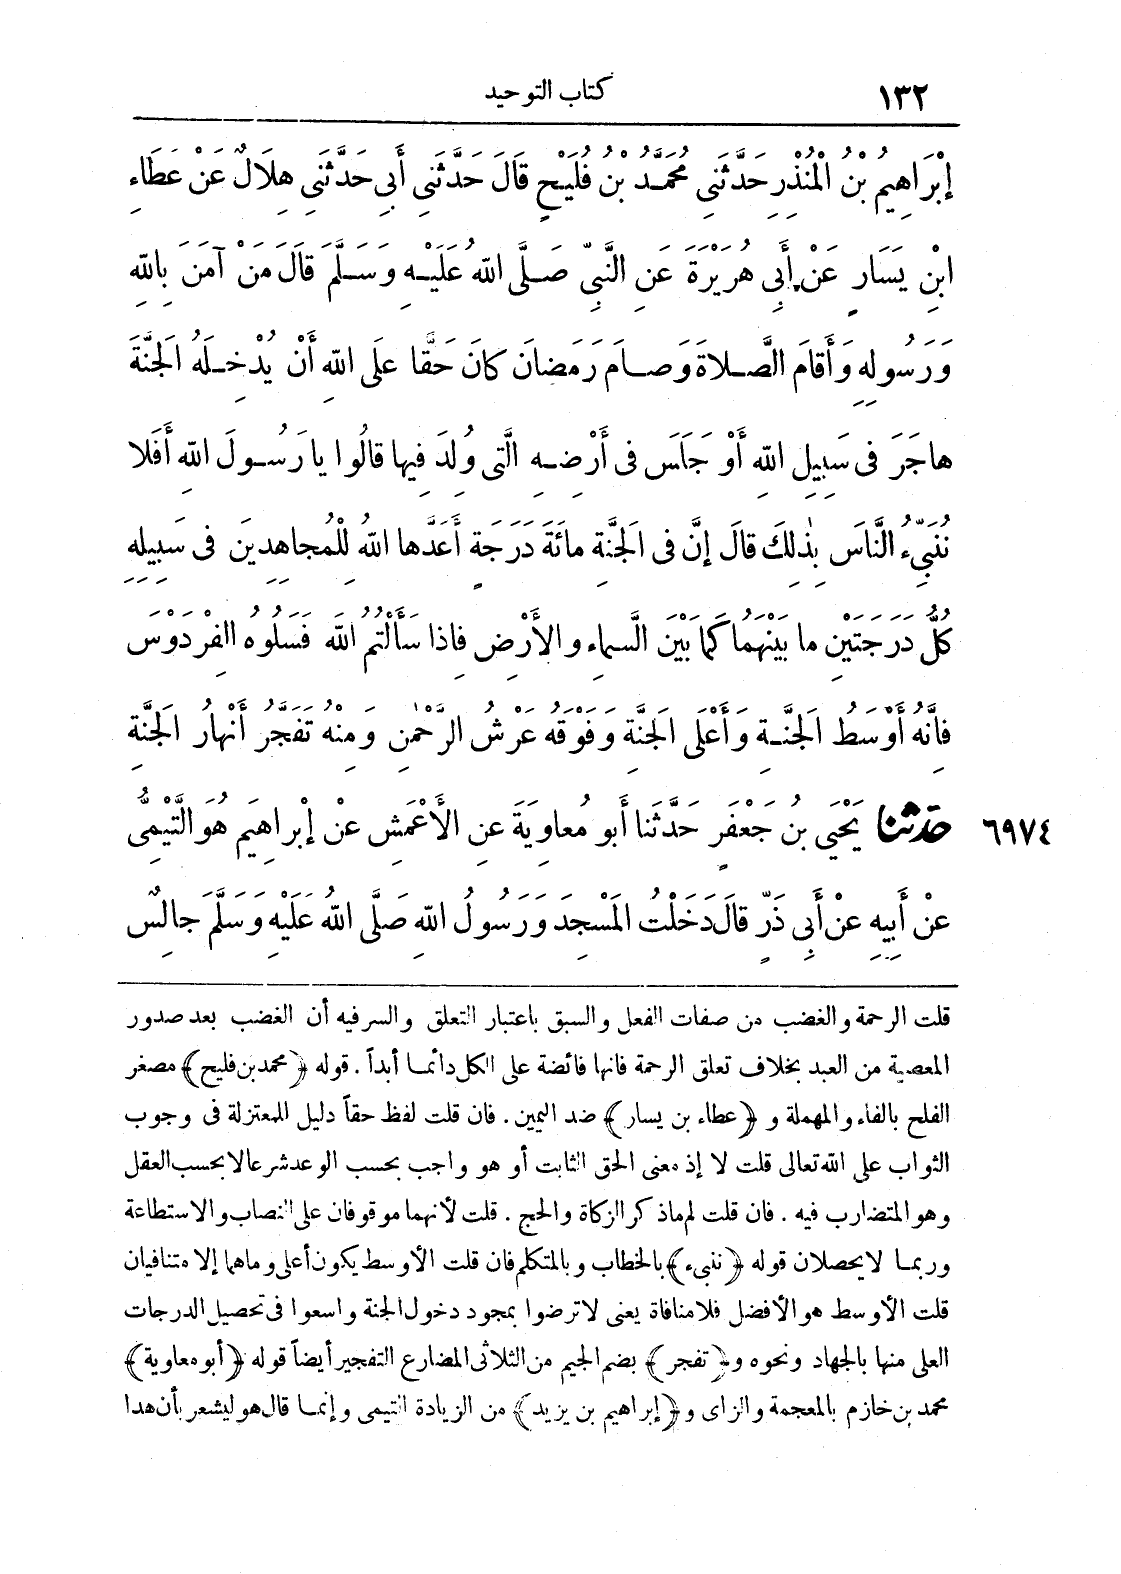 ١٣٢ كتاب التوحيد
إِبْرَاهِيمُ بْنُ الْمُنْذِرِ حَدَّثَنِي مُحَمَّدُ بْنُ فُلَيْحٍ قَالَ حَدَّثَنِي أَبِي حَدَّثَنِي هِلَالٌ عَنْ عَطَاءِ
ابْنِ يَسَارٍ عَنْ أَبِي هُرَيْرَةَ عَنِ النَّبِيِّ صَلَّى اللهُ عَلَيْهِ وَسَلَّمَ قَالَ مَنْ آمَنَ بِاللهِ
وَرَسُولِهِ وَأَقَامَ الصَّلاةَ وَصَامَ رَمَضَانَ كَانَ حَقًّا عَلَى اللهِ أَنْ يُدْخِلَهُ الْجَنَّةَ
هاجَرَ فى سَبِيلِ اللهِ أَوْ جَلَسَ فى أَرْضِهِ الَّتِى وُلِدَ فِيها قالُوا يا رَسُولَ اللهِ أَفَلا
نُنَبِّىءُ النَّاسَ بِذٰلِكَ قالَ إِنَّ فى الْجَنَّةِ مائَةَ دَرَجَةٍ أَعَدَّها اللهُ لِلْمُجاهِدِينَ فى سَبِيلِهِ
كُلُّ دَرَجَتَيْنِ ما بَيْنَهُما كَما بَيْنَ السَّماءِ والأَرْضِ فاذا سَأَلْتُمُ اللهَ فَسَلُوهُ الفِرْدَوْسَ
فانَّهُ أَوْسَطُ الْجَنَّةِ وَأَعْلَى الْجَنَّةِ وَفَوْقَهُ عَرْشُ الرَّحْمٰنِ وَمِنْهُ تَفَجَّرُ أَنْهارُ الْجَنَّةِ
٦٩٧٤ حدّثنا يَحْيَى بنُ جَعْفَرٍ حَدَّثَنا أَبو مُعاوِيَةَ عنِ الأَعْمَشِ عنْ إِبراهِيمَ هُوَ التَّيْمِىُّ
عنْ أَبِيهِ عنْ أَبِى ذَرٍّ قالَ دَخَلْتُ المَسْجِدَ وَرَسُولُ اللهِ صَلَّى اللهُ عَلَيْهِ وَسَلَّمَ جالِسٌ
قلت الرحمة والغضب من صفات الفعل والسبق باعتبار التعلق والسر فيه أن الغضب بعد صدور
المعصية من العبد بخلاف تعلق الرحمة فانها فائضة على الكل دائما أبداً . قوله ﴿محمد بن فليح﴾ مصغر
الفلح بالفاء والمهملة و ﴿عطاء بن يسار﴾ ضد اليمين . فان قلت لفظ حقاً دليل للمعتزلة فى وجوب
الثواب على الله تعالى قلت لا إذ معنى الحق الثابت أو هو واجب بحسب الوعد شرعا لا بحسب العقل
وهو المتضارب فيه . فان قلت لم ماذكر الزكاة والحج . قلت لأنهما موقوفان على النصاب والاستطاعة
وربما لا يحصلان قوله ﴿ننبىء﴾ بالخطاب وبالمتكلم فان قلت الأوسط يكون أعلى وماهما إلا متنافيان
قلت الأوسط هو الأفضل فلا منافاة يعنى لا ترضوا بمجود دخول الجنة واسعوا فى تحصيل الدرجات
العلى منها بالجهاد ونحوه و﴿تفجر﴾ بضم الجيم من الثلاثى المضارع التفجير أيضاً قوله ﴿أبو معاوية﴾
محمد بن خازم بالمعجمة والزاى و﴿إبراهيم بن يزيد﴾ من الزيادة التيمى وإنما قال هو ليشعر بأن هذا